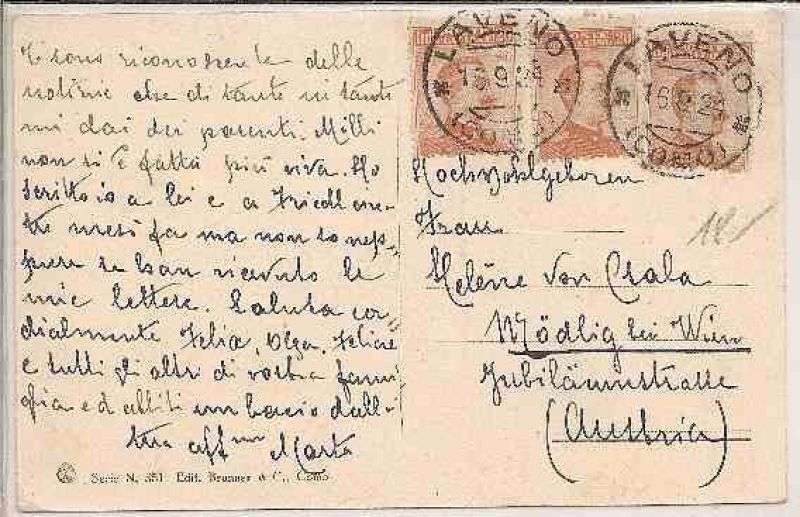 Ti sono riconoscente delle
notizie che di tanto in tanto
mi dai dei parenti. Milli
non si è fatta più viva. Ho
scritto io a lei e a Friedl
tre mesi fa ma non so nep-
pure se han ricevuto le
mie lettere. Saluta cor-
dialmente Felix, Olga, Felicie
e tutti gli altri di vostra fami
glia ed abbiti un bacio dalla
tua aff.ma Marta
Serie N. 551 Edit. Brunner & C., Como
LAVENO
16.9.24
(COMO)
LAVENO
16.9.24
(COMO)
Hochwohlgeboren
Frau
Helene von Csala
Mödlig bei Wien
Jubiläumstrasse
(Austria)